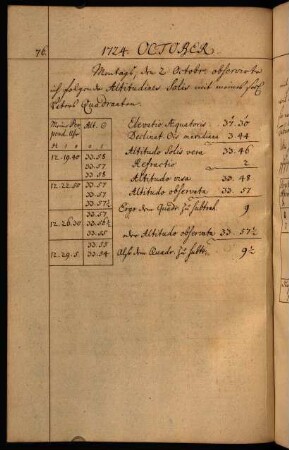 76.
1724. OCTOBER.
Montags, den 2 Octobr. observirte
ich folgende Altitudines Solis mit meinem
Quadranten
Alt. ☉
Elevatio Æquatoris 37. 30
Declinat. Oris meridiem 3 44
12. 19. 40 33. 58
33. 57
33. 58
Altitudo Solis vera 33. 46
Refractio 2
12. 22. 50 33. 57
33. 57
33. 57½
Altitudo visa 33. 48
Altitudo observata 33. 57
Ergo dem Quadr. zu subtrah. 9
12. 26. 30 33. 55
33. 56½
33. 55
oder Altitudo observata 33. 57½
12. 29. 5. 33. 55
33. 54
Also dem Quadr. zu subtr. 9½